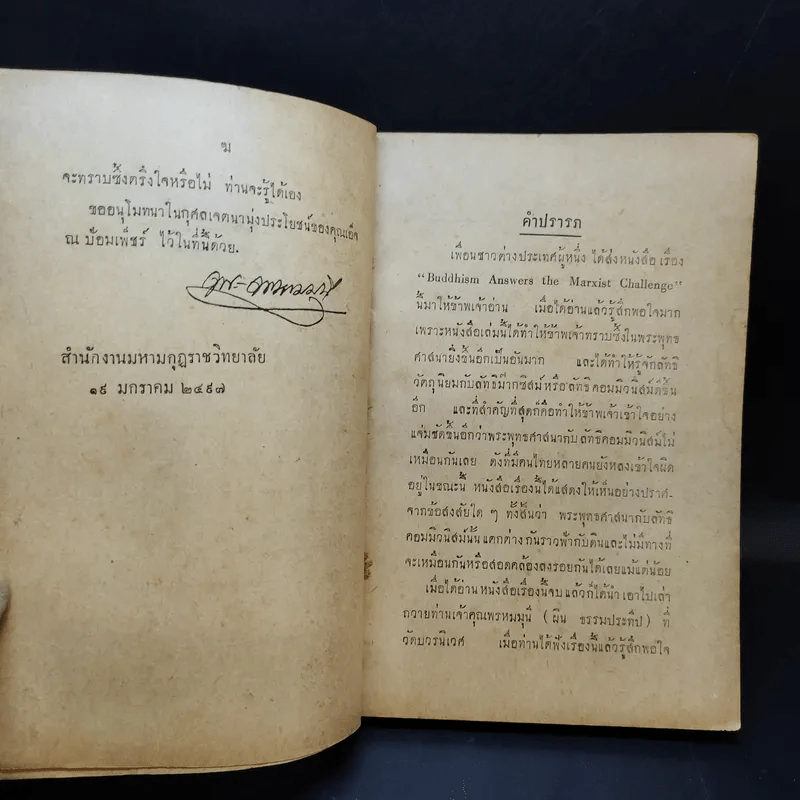 ฆ
จะทราบซึ้งตรึงใจหรือไม่ ท่านจะรู้ได้เอง
ขออนุโมทนาในกุศลเจตนามุ่งประโยชน์ของคุณเอ็จ
ณ ป้อมเพ็ชร์ ไว้ในที่นี้ด้วย.
สำนักงานมหามกุฏราชวิทยาลัย
๑๙ มกราคม ๒๔๙๗
คำปรารภ
เพื่อนชาวต่างประเทศผู้หนึ่ง ได้ส่งหนังสือ เรื่อง
"Buddhism Answers the Marxist Challenge"
นี้มาให้ข้าพเจ้าอ่าน เมื่อได้อ่านแล้วรู้สึกพอใจมาก
เพราะหนังสือเล่มนี้ได้ทำให้ข้าพเจ้าทราบซึ้งในพระพุทธ
ศาสนายิ่งขึ้นอีกเป็นอันมาก และได้ทำให้รู้จักลัทธิ
วัตถุนิยมกับลัทธิม๊ากซิสม์หรือลัทธิ คอมมิวนิสม์ดีขึ้น
อีก และที่สำคัญที่สุดก็คือทำให้ข้าพเจ้าเข้าใจอย่าง
แจ่มชัดขึ้นอีกว่าพระพุทธศาสนากับลัทธิคอมมิวนิสม์ไม่
เหมือนกันเลย ดังที่มีคนไทยหลายคนยังหลงเข้าใจผิด
อยู่ในขณะนี้ หนังสือเรื่องนี้ได้แสดงให้เห็นอย่างปราศ-
จากข้อสงสัยใด ๆ ทั้งสิ้นว่า พระพุทธศาสนากับลัทธิ
คอมมิวนิสม์นั้น แตกต่าง กันราวฟ้ากับดินและไม่มีทางที่
จะเหมือนกันหรือสอดคล้องลงรอยกันได้เลยแม้แต่น้อย
เมื่อได้อ่าน หนังสือเรื่องนี้จบ แล้วก็ได้นำ เอาไปเล่า
ถวายท่านเจ้าคุณพรหมมุนี ( ผิน ธรรมประทีป ) ที่
วัดบวรนิเวศ เมื่อท่านได้ฟังเรื่องนี้แล้วรู้สึกพอใจ